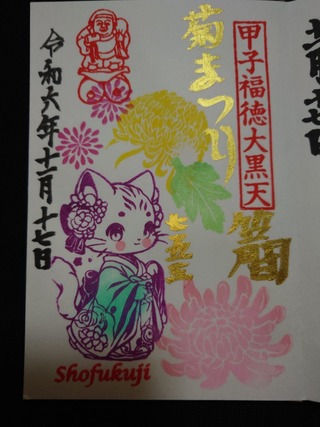 甲子福徳大黒天
菊まつり
笠間
七五三
令和六年十一月十七日
Shofukuji
十七日